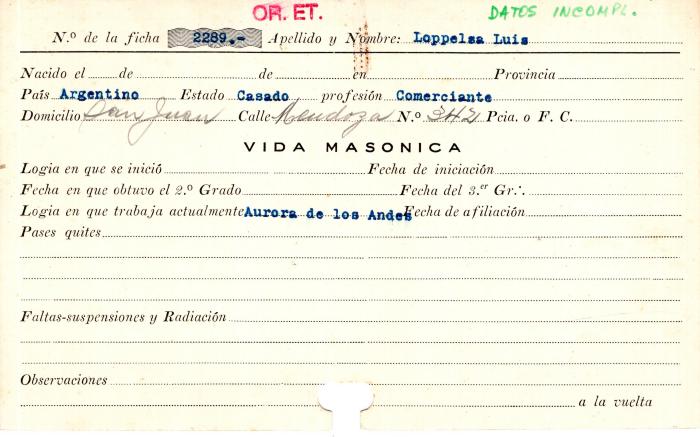 OR. ET. DATOS INCOMPL.
N.º de la ficha 2289.- Apellido y Nombre: Loppelsa Luis
Nacido el de de en Provincia
País Argentino Estado Casado profesión Comerciante
Domicilio San Juan Calle Mendoza N.º 342 Pcia. o F. C.
VIDA MASONICA
Logia en que se inició Fecha de iniciación
Fecha en que obtuvo el 2.º Grado Fecha del 3.er Gr.·.
Logia en que trabaja actualmente Aurora de los Andes Fecha de afiliación
Pases quites
Faltas-suspensiones y Radiación
Observaciones
a la vuelta